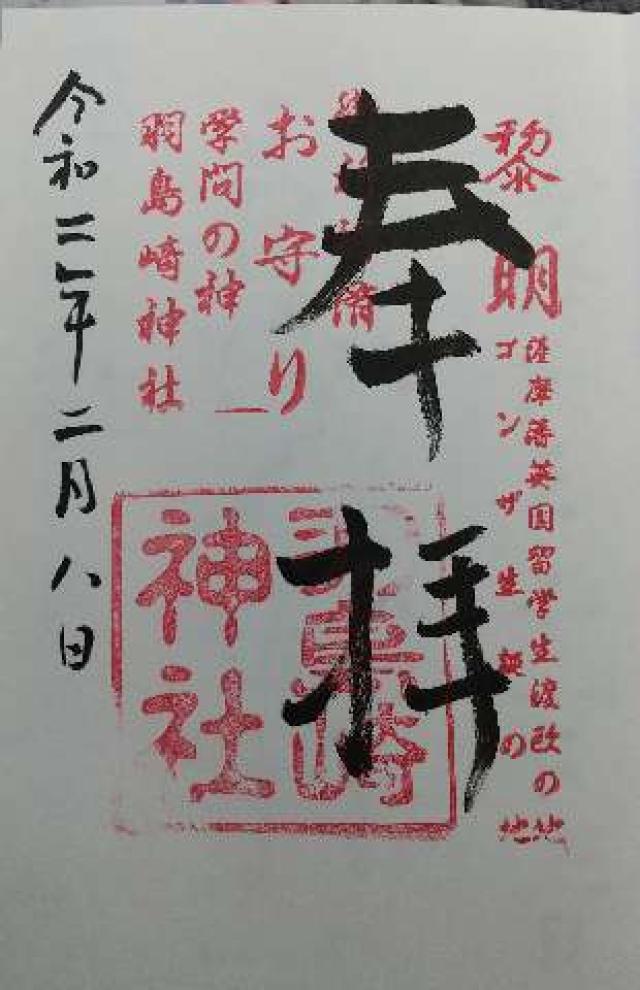 黎明
薩摩藩英国留学生渡欧の地
ゴンザ生誕の地
奉拝
お守り
学問の神
羽島崎神社
羽島崎
神社
令和二年二月八日